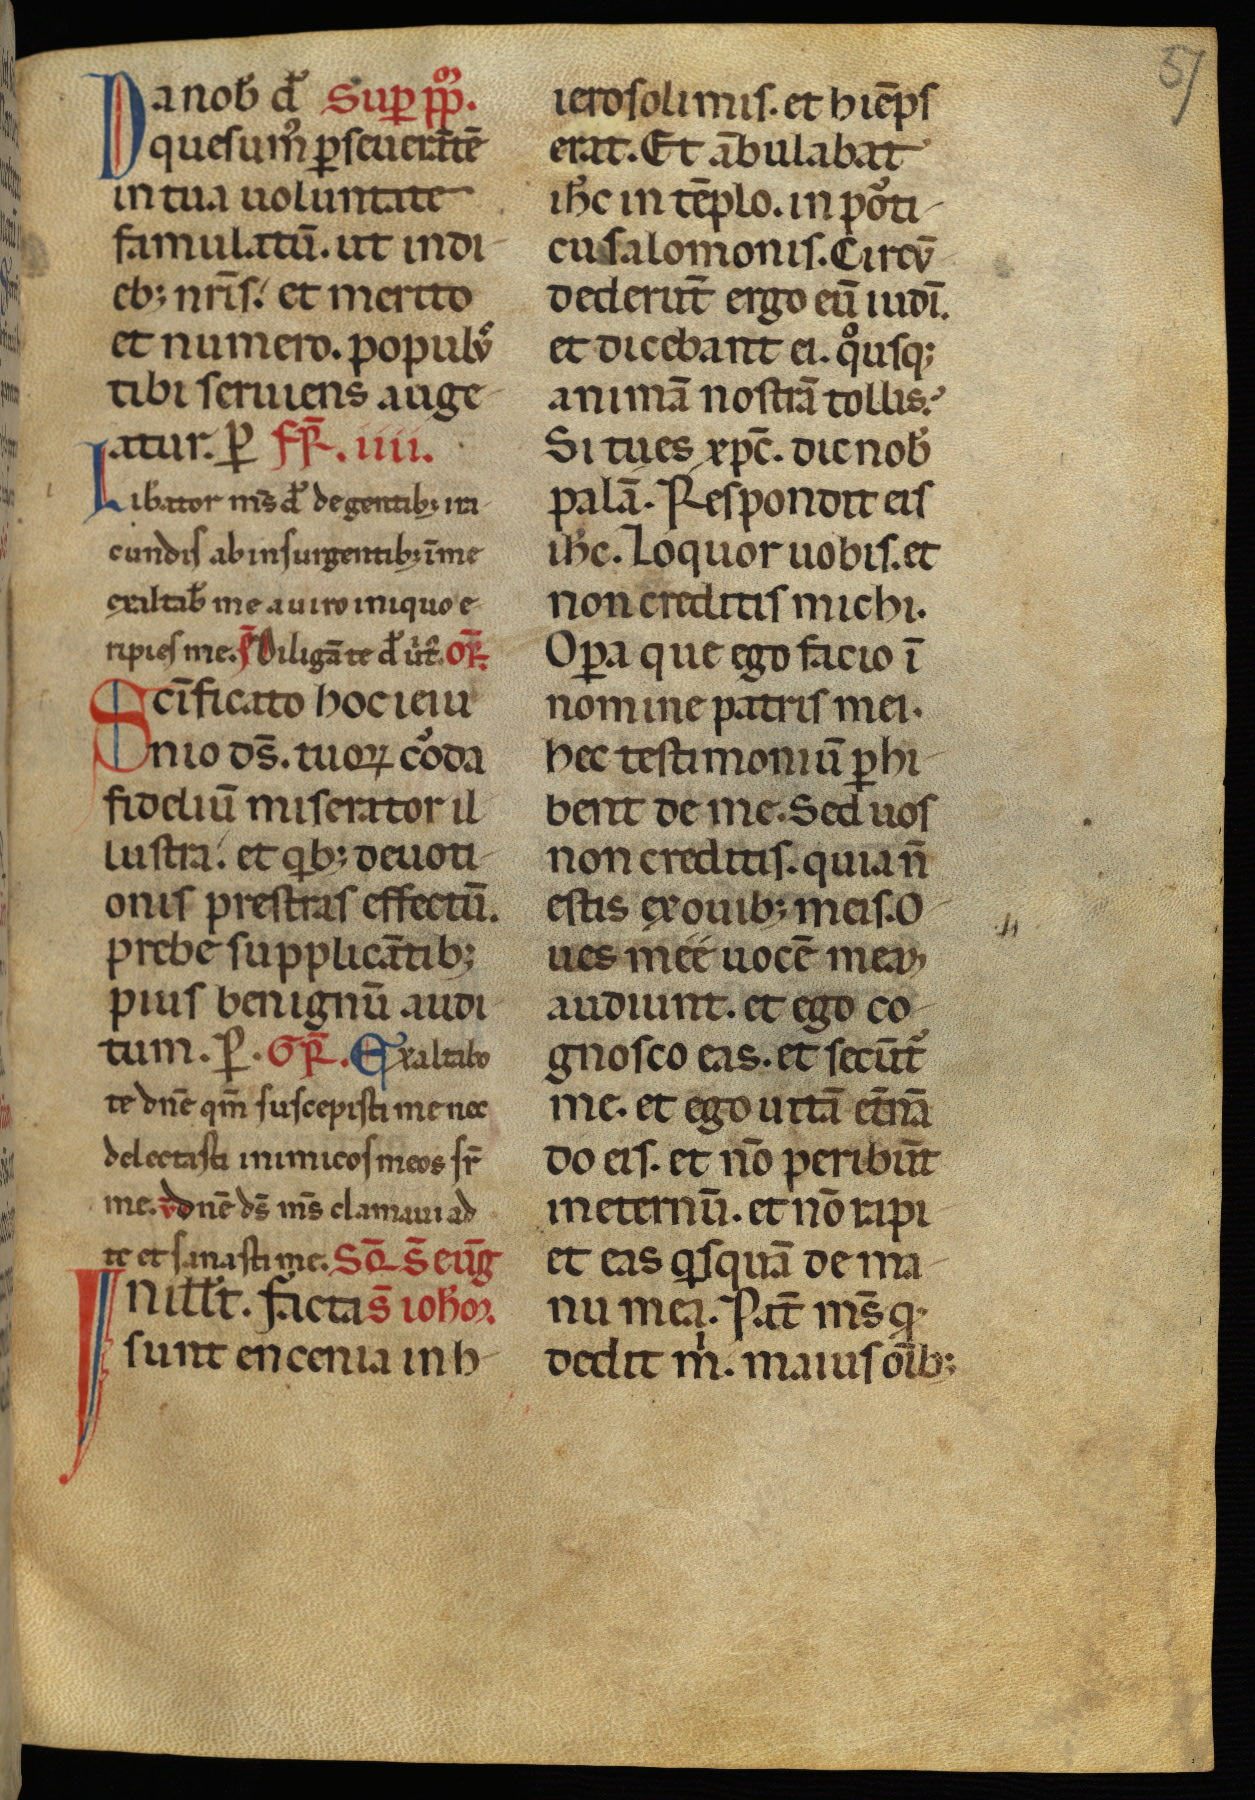 57
Da nob̄ d̄s Sup̄ pp̄lm.
quesum᷒ ꝑseuerātē
in tua uoluntate
famulatū. ut in di-
eb; nr̄is. et merito
et numero. populꝰ
tibi seruiens auge-
atur. ꝑ FR̄. iiii.
Lib̄ator ms̄ d̄s de gentib; ira-
cundis ab insurgentib; ī me
exaltab̄ me a uiro iniquo e-
ripies me. P̄s Diligā te d̄s ūt. OR̄.
Scīficato hoc ieiu
nio ds̄. tuoꝝ corda
fideliū miserator il
lustra. et qib; deuoti-
onis prestas effectū.
prebe supplicātib;
pius benignū audi-
tum. ꝑ. GR̄. Exaltabo
te dn̄e qm̄ suscepisti me nec
delectasti inimicos meos sr̄
me. V̄ dn̄e ds̄ ms̄ clamaui ad
te et sanasti me. Sq̄ s̄ eūg
In ill̄ t. facta s̄ ioh̄oꝫ.
sunt encenia in h-
ierosolimis. et hiēps
erat. Et ābulabat
ih̄c in tēplo. in porti-
cu salomonis. Circū-
dederut̄ ergo eū iudī.
et dicebant ei. qousq;
animā nostrā tollis?
Si tu es xp̄c. dic nob̄
palā. Respondit eis
ih̄c. Loquor uobis. et
non creditis michi.
Oꝑa que ego facio ī
nomine patris mei.
hec testimoniū ꝑhi-
bent de me. Sed uos
non creditis. quia n̄
estis ex ouib; meis. O-
ues mee uocē meaꝫ
audiunt. et ego co-
gnosco eas. et secūt᷒
me. et ego uitā et̄nā
do eis. et nō peribūt
in eternū. et nō rapi-
et eas qisquā de ma-
nu mea. Pat̄ ms̄ q
dedit m̄i. maius oīb;